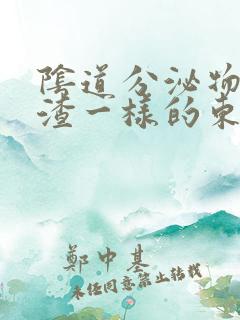 陰道分泌物
渣一樣的東
鄭中基
未經同意禁止轉載